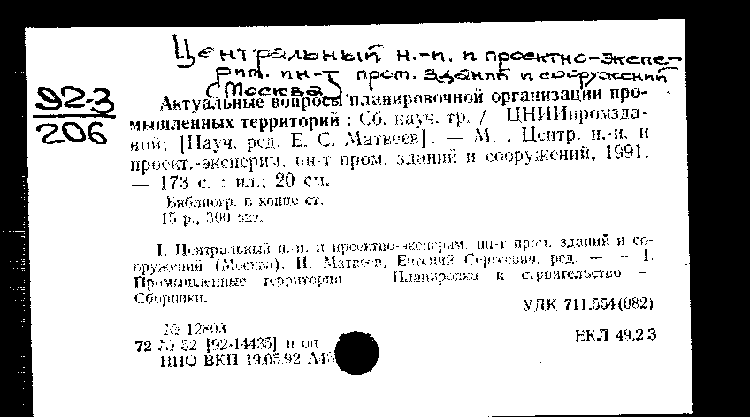 Центральный н.-и. и проектно-экспе-
рим. ин-т пром. зданий и сооружений
(Москва)
92-3
206
Актуальные вопросы планировочной организации про-
мышленных территорий : Сб. науч. тр. / ЦНИИпромзда-
ний; [Науч. ред. Е. С. Матвеев]. — М. : Центр. н.-и. и
проект.-эксперим. ин-т пром. зданий и сооружений, 1991.
— 173 с. : ил.; 20 см.
Библиогр. в конце ст.
15 р., 300 экз.
I. Центральный н.-и. и проектно-эксперим. ин-т пром. зданий и со-
оружений (Москва). II. Матвеев, Евгений Сергеевич, ред. — — 1.
Промышленные территории — Планировка и строительство —
Сборники.
УДК 711.554(082)
№ 12803
72 № 52 [92-14435] п ап
ЕКЛ 49.23
НПО ВКП 19.05.92 А4